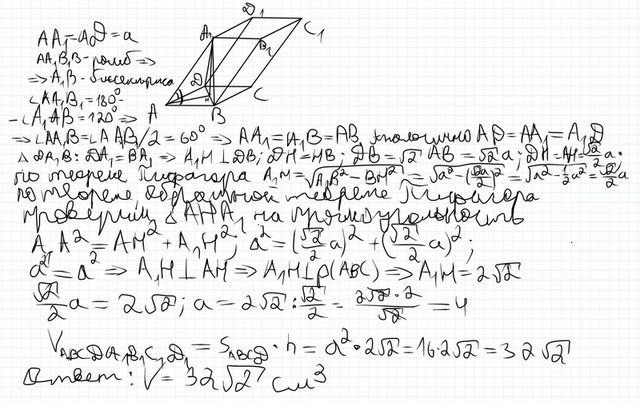 AA₁=AD=a
AA₁B₁B-ромб ⇒
⇒ A₁B-биссектриса
∠AA₁B₁=180°-
-∠A₁AB=120° ⇒
⇒ ∠AA₁B=∠AA₁B₁/2=60° ⇒ AA₁=A₁B=AB, аналогично AD=AA₁=A₁D
△DA₁B: DA₁=BA₁ ⇒ A₁H⊥DB; DH=HB; DB=√2 AB=√2a; DH=AH=√2/2 a.
по теореме Пифагора A₁H=√(A₁B²-BH²)=√(a²-(√2a/2)²)=√(a²-1/2a²)=√2/2 a
по теореме обратной теореме Пифагора
проверим △AHA₁ на прямоугольность
A₁A²=AH²+A₁H²; a²=(√2/2 a)²+(√2/2 a)²;
a²=a² ⇒ A₁H⊥AH ⇒ A₁H⊥p(ABC) ⇒ A₁H=2√2
√2/2 a=2√2; a=2√2:√2/2=2√2·2/√2=4
V ABCDA₁B₁C₁D₁=S ABCD·h=a²·2√2=16·2√2=32√2
Ответ: V=32√2 см³
D₁
C₁
A₁
B₁
D
C
H
A
B